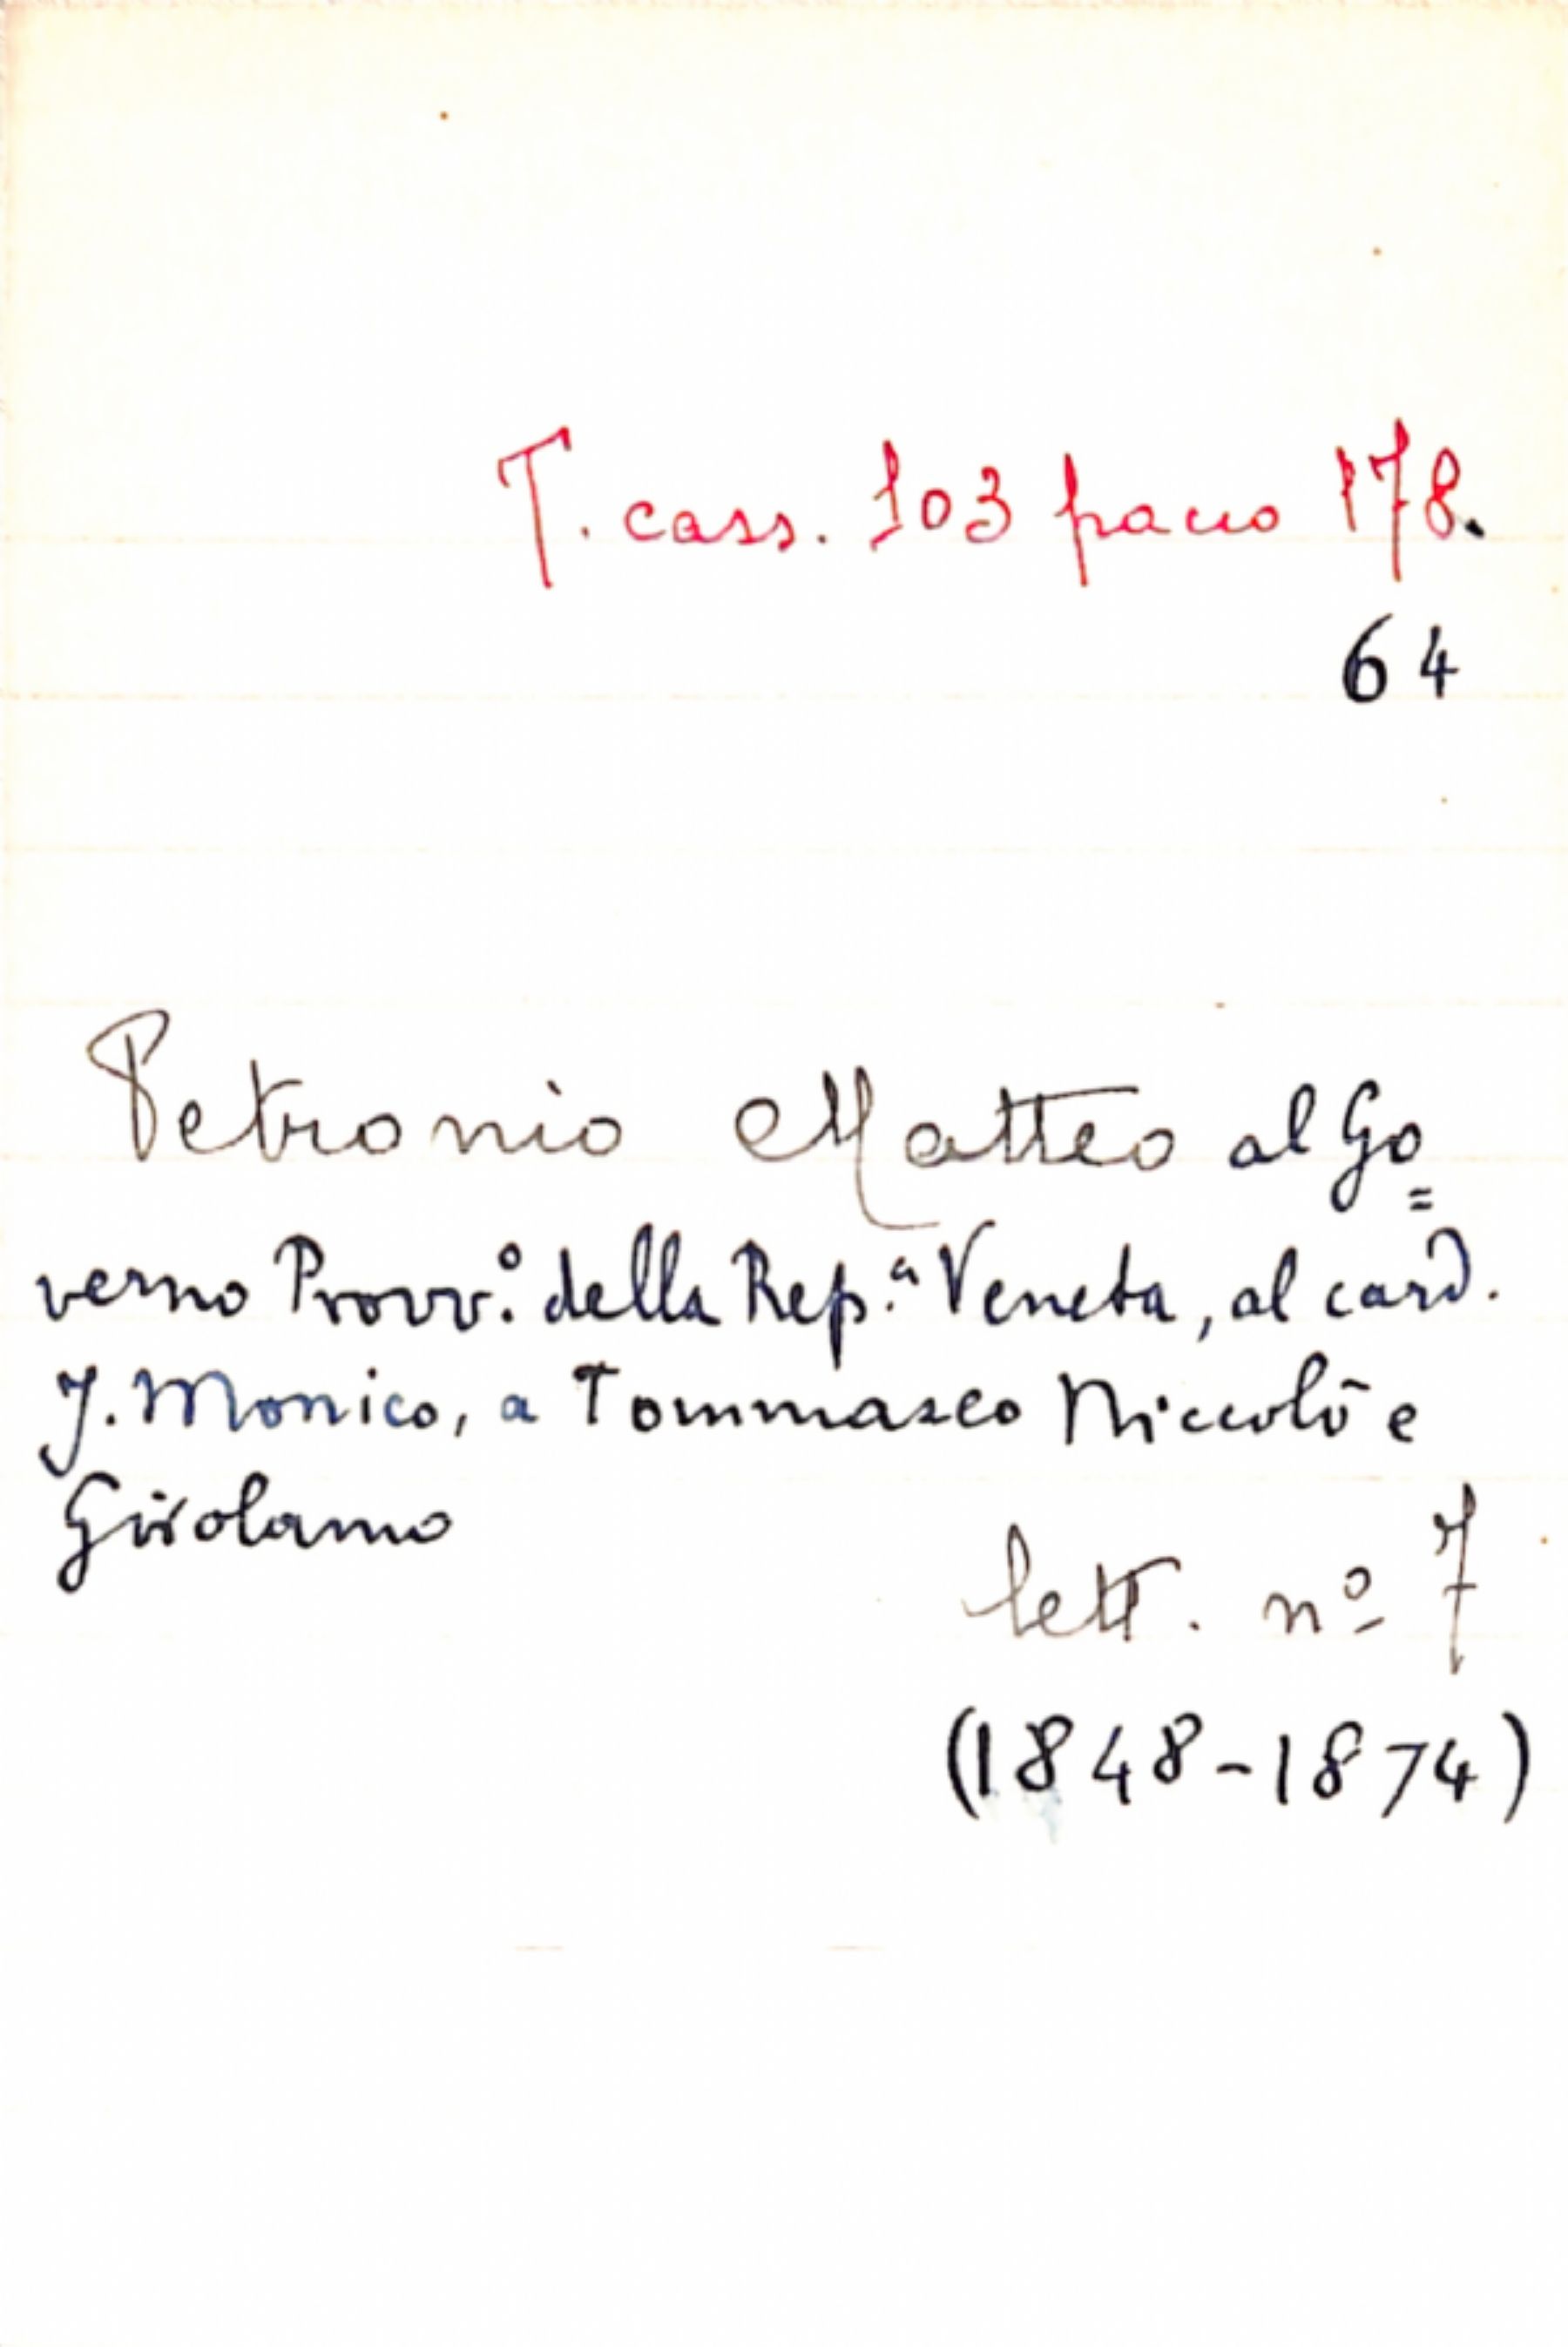 T. cass. 103 pacco 178.
64
Petronio Matteo al Go=
verno Provv.º della Rep.ª Veneta, al card.
J. Monico, a Tommaseo Niccolò e
Girolamo
lett. nº 7
(1848-1874)